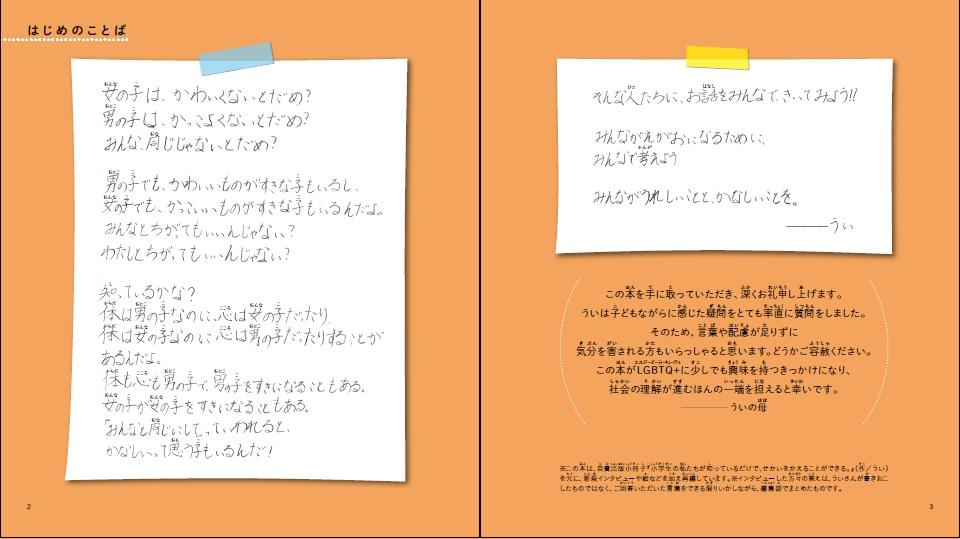 はじめのことば
女の子は、かわいくないとだめ?
男の子は、かっこよくないとだめ?
みんな、同じじゃないとだめ?
男の子でも、かわいいものがすきな子もいるし、
女の子でも、かっこいいものがすきな子もいるんだよ。
みんなとちがってもいいんじゃない?
わたしとちがってもいいんじゃない?
知っているかな?
体は男の子なのに、心は女の子だったり、
体は女の子なのに心は男の子だったりすることが
あるんだよ。
体も心も男の子で、男の子をすきになることもある。
女の子が女の子をすきになることもある。
「みんなと同じにして」っていわれると、
かなしいって思う子もいるんだ!
2
そんな人たちに、お話をみんなで、きいてみよう!!
みんながえがおになるために、
みんなで考えよう
みんながうれしいことと、かなしいことを。
――うい
この本を手に取っていただき、深くお礼申し上げます。
ういは子どもながらに感じた疑問をとても率直に質問をしました。
そのため、言葉や配慮が足りずに
気分を害される方もいらっしゃると思います。どうかご容赦ください。
この本がLGBTQ+に少しでも興味を持つきっかけになり、
社会の理解が進むほんの一端を担えると幸いです。
――ういの母
※この本は、自費出版小冊子『小学生の私たちが知っているだけで、せかいをかえることができる。』(作/うい)
を元に、新規インタビューや絵などを加え再編しています。※インタビューした方々の答えは、ういさんが書きおこ
したものではなく、ご回答いただいた言葉をできる限りいかしながら、編集部でまとめたものです。
3